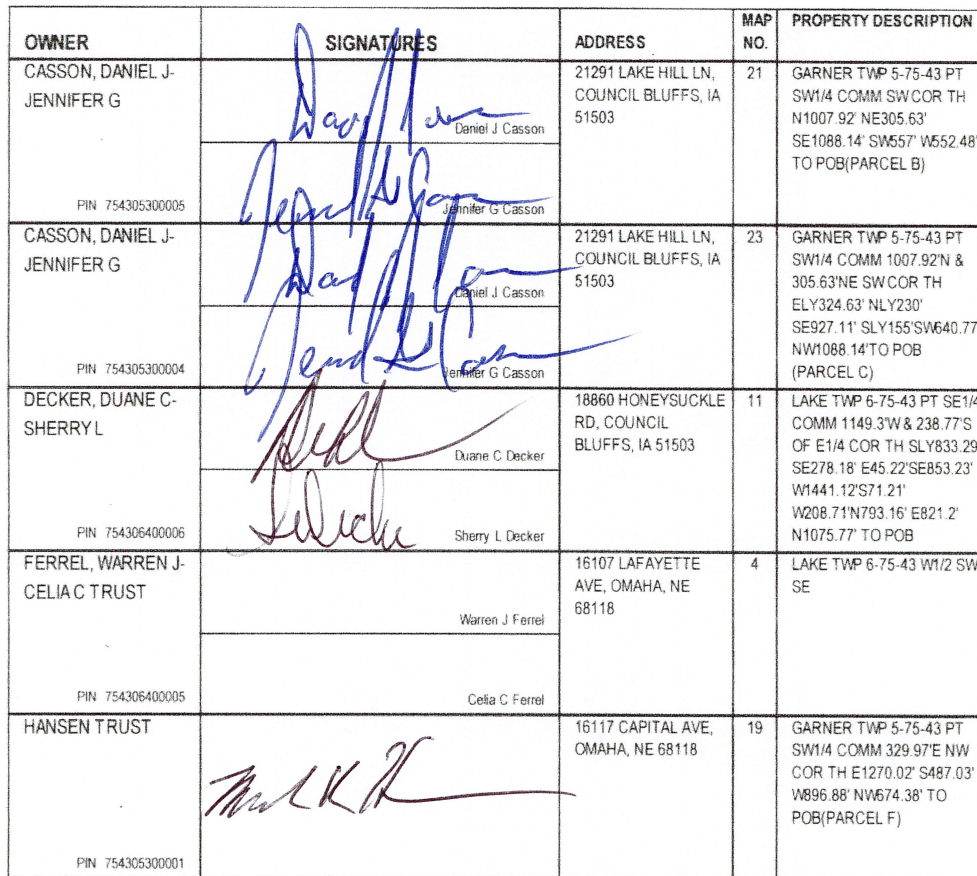 OWNER SIGNATURES ADDRESS MAP NO. PROPERTY DESCRIPTION
CASSON, DANIEL J-
JENNIFER G
PIN 754305300005
Daniel J Casson
Jennifer G Casson
21291 LAKE HILL LN,
COUNCIL BLUFFS, IA
51503
21
GARNER TWP 5-75-43 PT
SW1/4 COMM SW COR TH
N1007.92' NE305.63'
SE1088.14' SW557' W552.48'
TO POB(PARCEL B)
CASSON, DANIEL J-
JENNIFER G
PIN 754305300004
Daniel J Casson
Jennifer G Casson
21291 LAKE HILL LN,
COUNCIL BLUFFS, IA
51503
23
GARNER TWP 5-75-43 PT
SW1/4 COMM 1007.92'N &
305.63'NE SW COR TH
ELY324.63' NLY230'
SE927.11' SLY155'SW640.77
NW1088.14'TO POB
(PARCEL C)
DECKER, DUANE C-
SHERRY L
PIN 754306400006
Duane C Decker
Sherry L Decker
18860 HONEYSUCKLE
RD, COUNCIL
BLUFFS, IA 51503
11
LAKE TWP 6-75-43 PT SE1/4
COMM 1149.3'W & 238.77'S
OF E1/4 COR TH SLY833.29
SE278.18' E45.22'SE853.23'
W1441.12'S71.21'
W208.71'N793.16' E821.2'
N1075.77' TO POB
FERREL, WARREN J-
CELIA C TRUST
PIN 754306400005
Warren J Ferrel
Celia C Ferrel
16107 LAFAYETTE
AVE, OMAHA, NE
68118
4
LAKE TWP 6-75-43 W1/2 SW
SE
HANSEN TRUST
PIN 754305300001
16117 CAPITAL AVE,
OMAHA, NE 68118
19
GARNER TWP 5-75-43 PT
SW1/4 COMM 329.97'E NW
COR TH E1270.02' S487.03'
W896.88' NW674.38' TO
POB(PARCEL F)